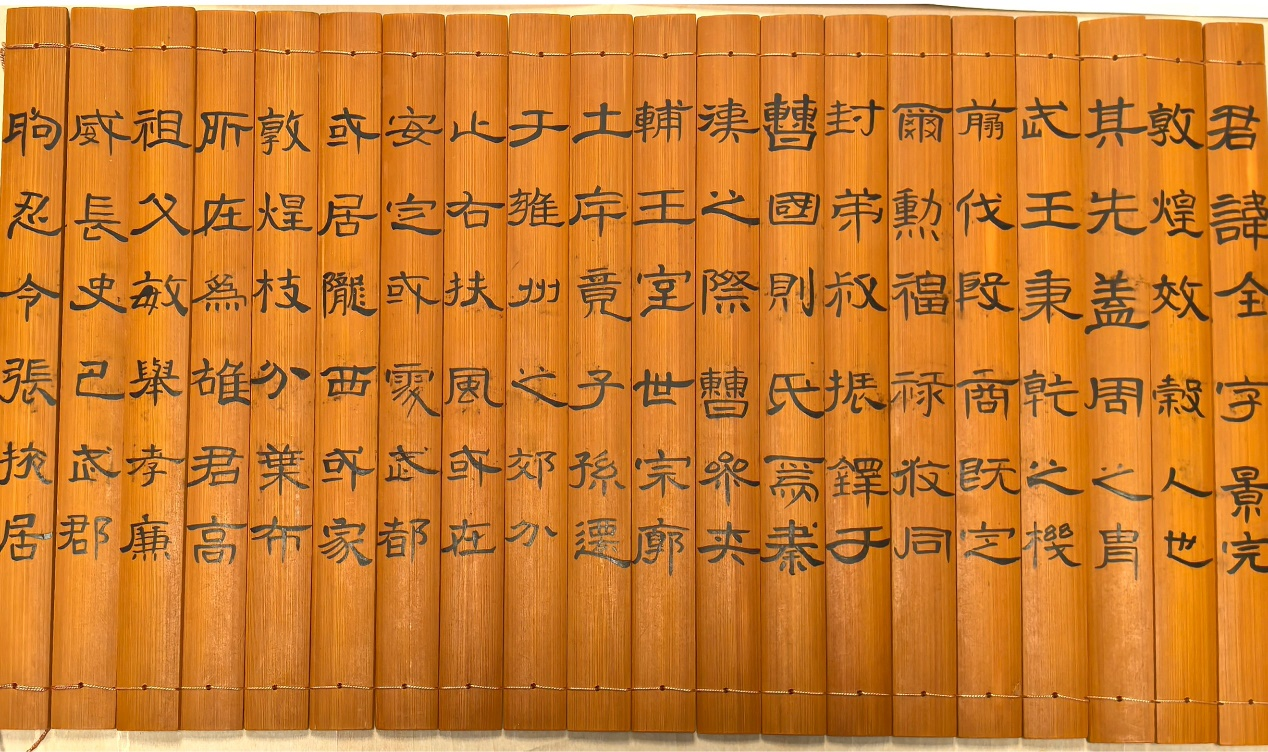 君諱全字景完
敦煌效穀人也
其先蓋周之冑
武王秉乾之機
翦伐殷商既定
爾勳福祿攸同
封弟叔振鐸于
曹國則氏焉秦
漢之際曹參夾
輔王室世宗廓
土斥竟子孫遷
于雍州之郊分
止右扶風或在
安定或處武都
或居隴西或家
敦煌枝分葉布
所在為雄君高
祖父敏舉孝廉
威長史己武郡
朐忍令張掖居